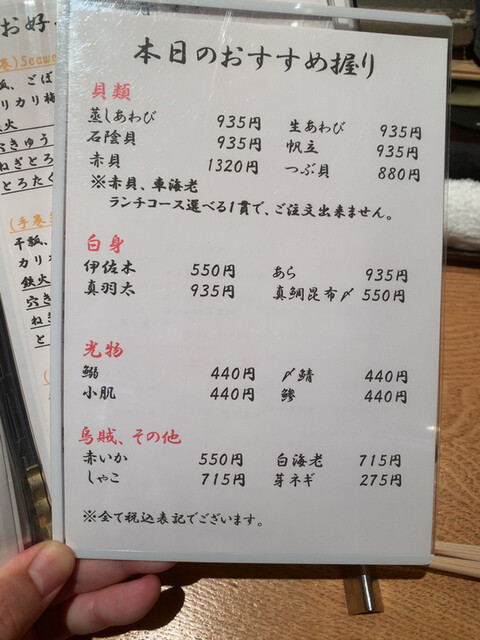 お好
本日のおすすめ握り
貝類
蒸しあわび 935円 生あわび 935円
石陰貝 935円 帆立 935円
赤貝 1320円 つぶ貝 880円
※赤貝、車海老
ランチコース選べる1貫で、ご注文出来ません。
白身
伊佐木 550円 あら 935円
真羽太 935円 真鯛昆布〆 550円
光物
鰯 440円 〆鯖 440円
小肌 440円 鯵 440円
烏賊、その他
赤いか 550円 白海老 715円
しゃこ 715円 芽ネギ 275円
※全て税込表記でございます。
)Seawe
、ごぼ
カリカリ梅
鉄火
穴きゅう
ねぎとろ
とろたく
(手巻
干瓢、
カリカ
鉄火
穴き
ねぎ
と